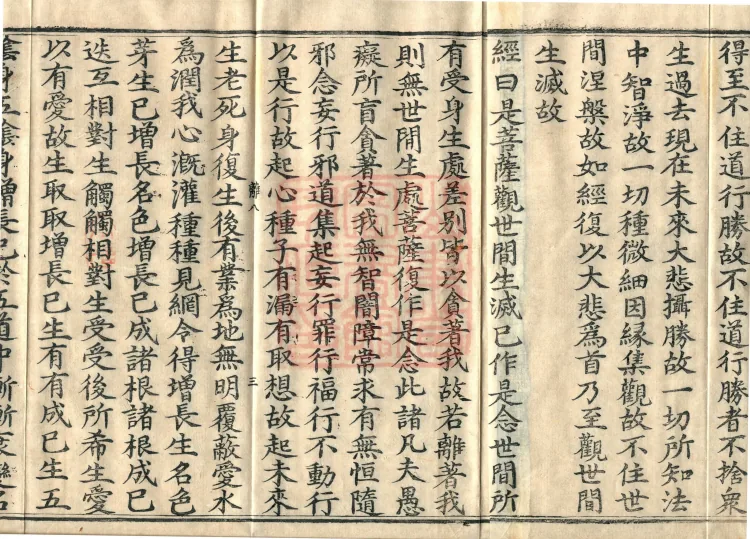 得至不住道行勝故不住道行勝者不捨衆
生過去現在未來大悲攝勝故一切所知法
中智淨故一切種微細因緣集觀故不住世
間涅槃故如經復以大悲爲首乃至觀世間
生滅故
經曰是菩薩觀世間生滅已作是念世間所
有受身生處差別皆以貪著我故若離著我
則無世間生處菩薩復作是念此諸凡夫愚
癡所盲貪著於我無智闇障常求有無恒隨
邪念妄行邪道集起妄行罪行福行不動行
以是行故起心種子有漏有取想故起未來
離八 三
生老死身復生後有業爲地無明覆蔽愛水
爲潤我心溉灌種種見網令得增長生名色
芽生已增長名色增長已成諸根諸根成已
迭互相對生觸觸相對生受受後所希生愛
以有愛故生取取增長已生有有成已生五
陰身五陰身增長已於五道中